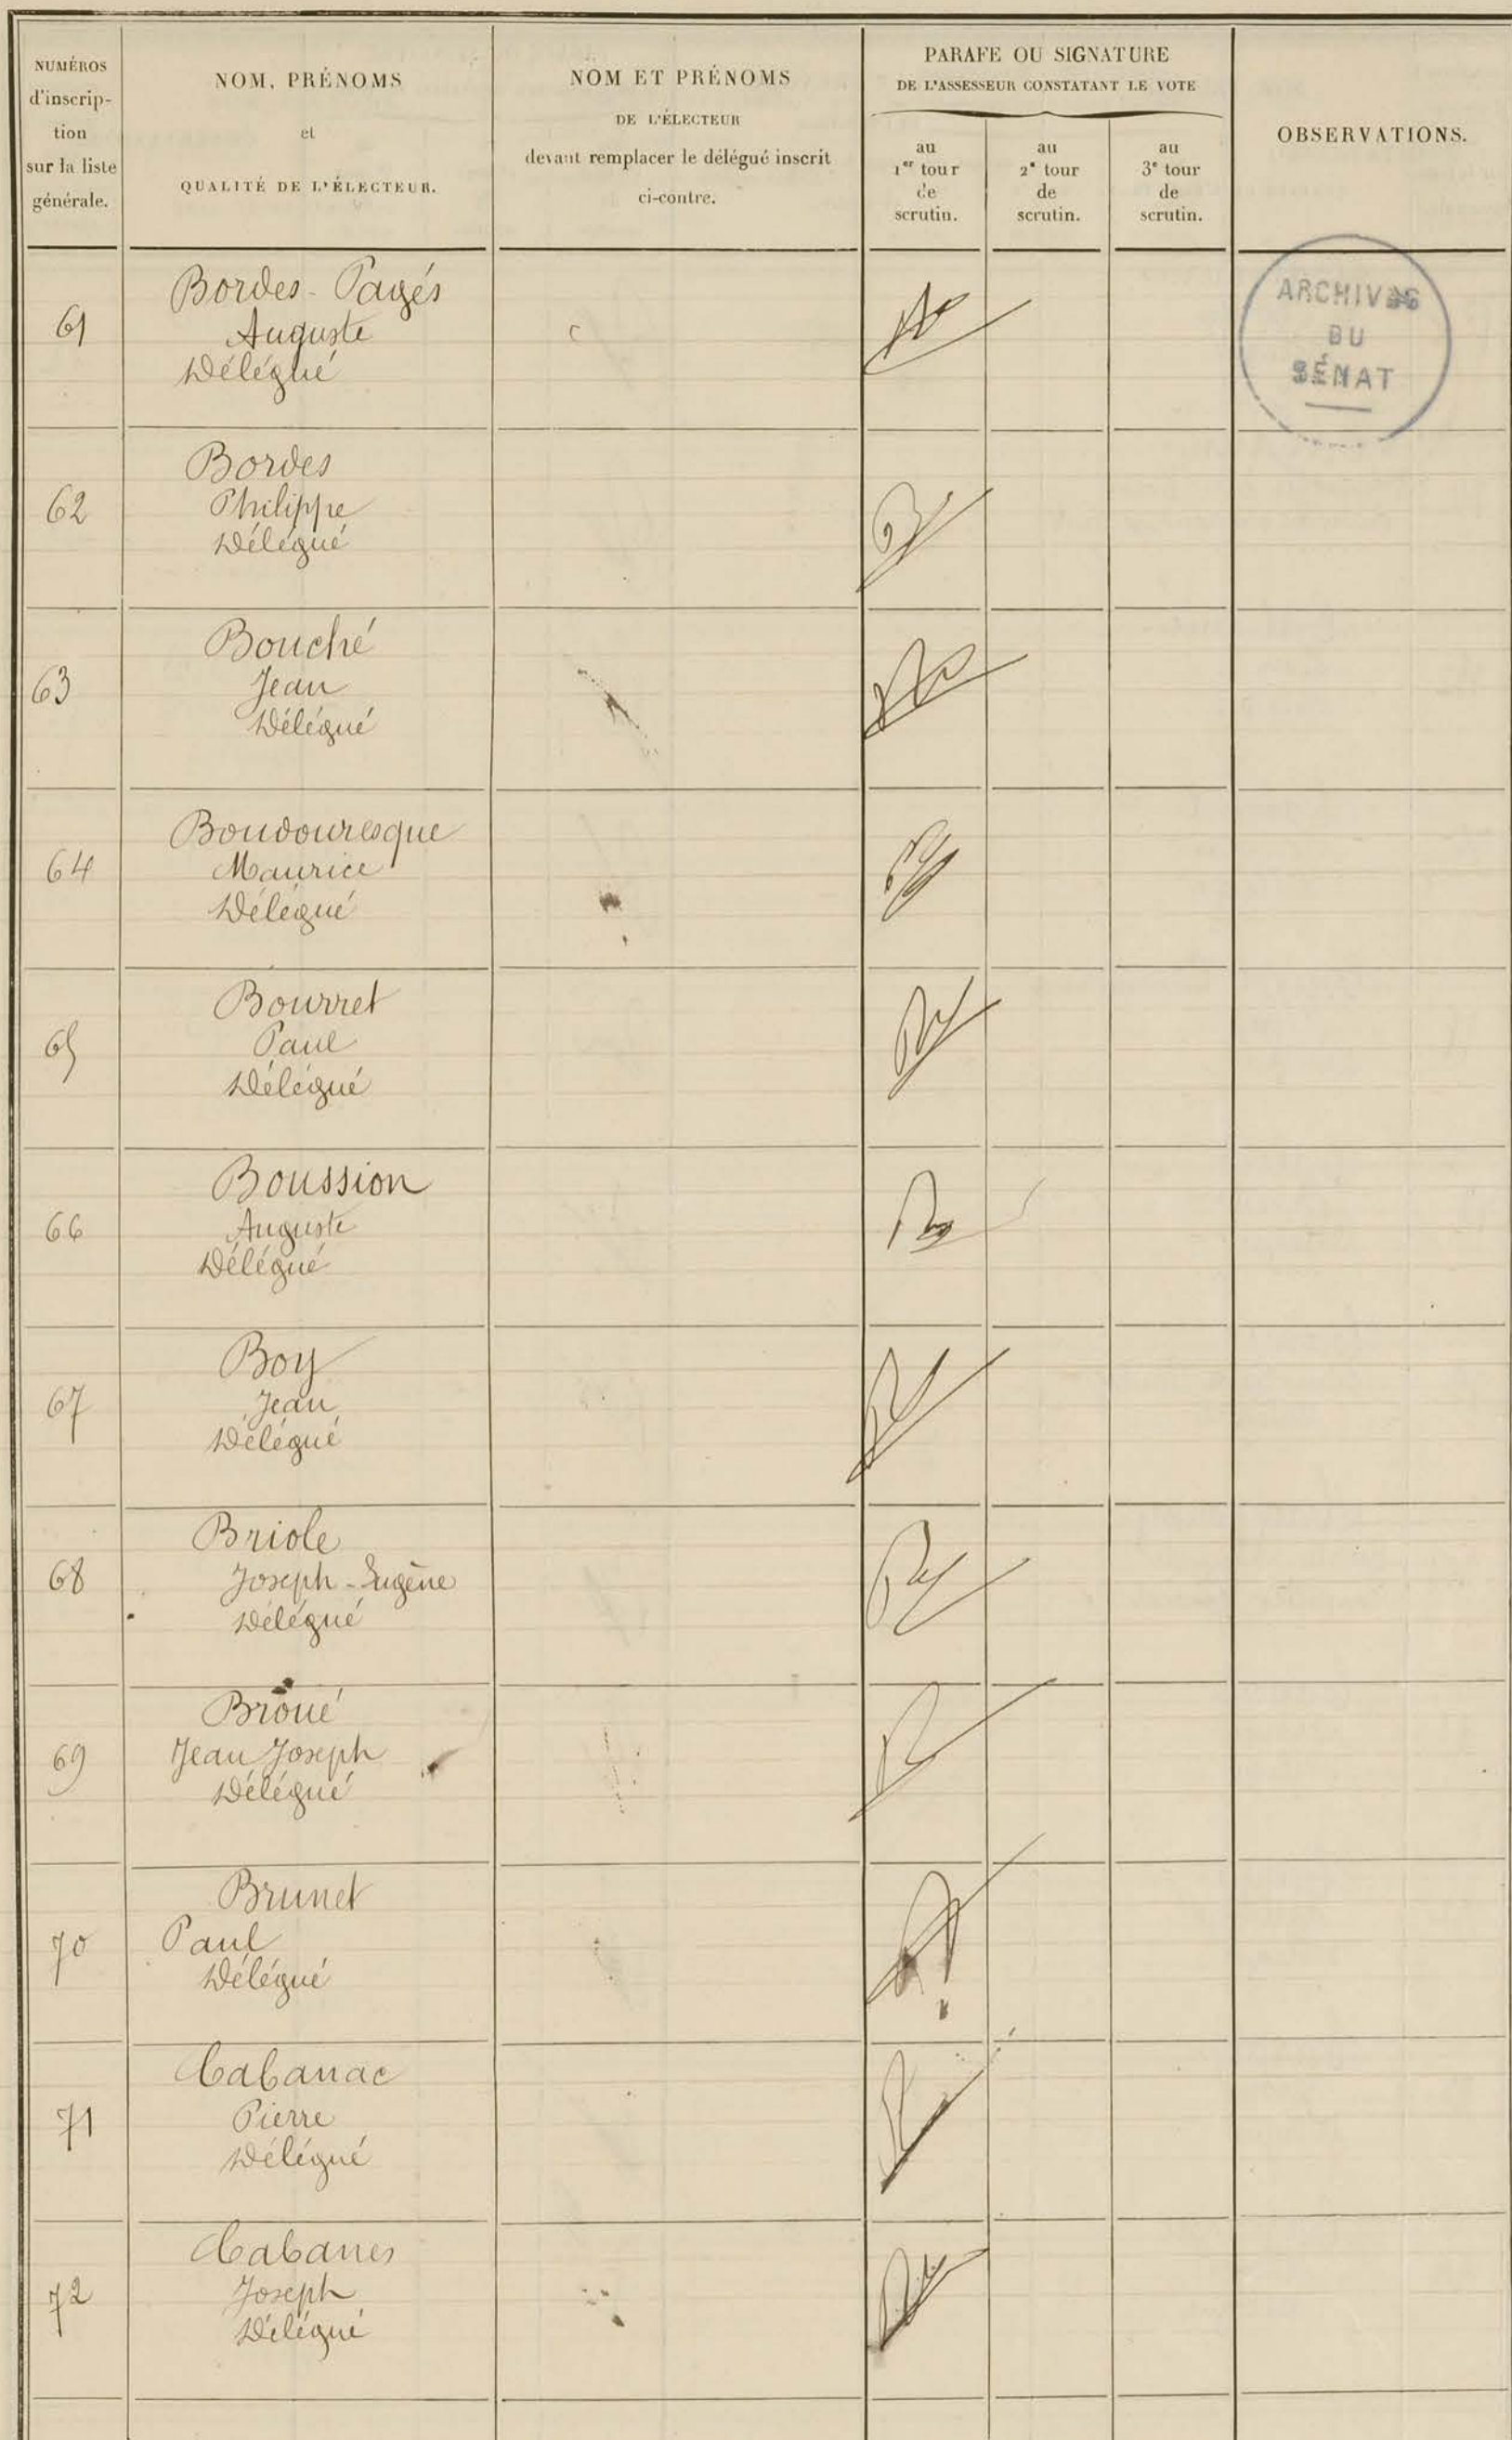 NUMÉROS
d'inscrip-
tion
sur la liste
générale.
NOM, PRÉNOMS
et
QUALITÉ DE L'ÉLECTEUR.
NOM ET PRÉNOMS
DE L'ÉLECTEUR
devant remplacer le délégué inscrit
ci-contre.
PARAFE OU SIGNATURE
DE L'ASSESSEUR CONSTATANT LE VOTE
au
1er tour
de
scrutin.
au
2e tour
de
scrutin.
au
3e tour
de
scrutin.
OBSERVATIONS.
ARCHIVES
DU
SÉNAT
61
Bordes-Pagés
Auguste
Délégué
62
Bordes
Philippe
Délégué
63
Bouché
Jean
Délégué
64
Boudouresque
Maurice
Délégué
65
Bourret
Paul
Délégué
66
Boussion
Auguste
Délégué
67
Boy
Jean
Délégué
68
Briole
Joseph-Eugène
Délégué
69
Broué
Jean Joseph
Délégué
70
Brunet
Paul
Délégué
71
Cabanac
Pierre
Délégué
72
Cabanes
Joseph
Délégué